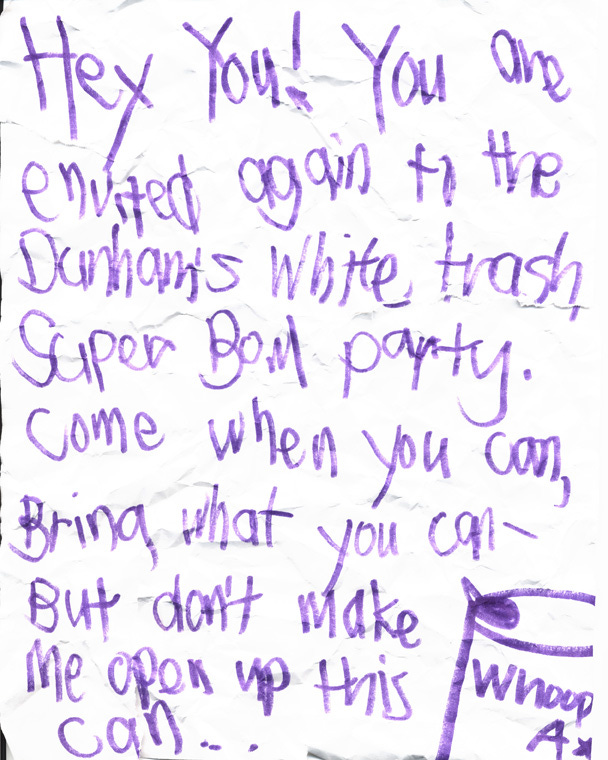 Hey You! You are
envited again to the
Dunham's White trash
Super Bowl party.
Come when you can,
Bring what you can-
But don't make
me open up this
can...
Whoop
A